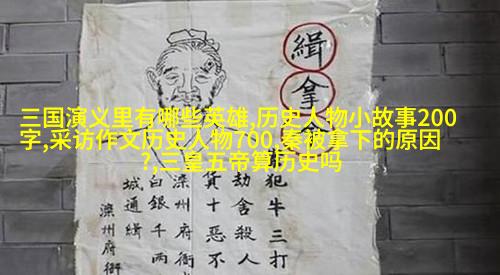 三国演义里有哪些英雄,历史人物小故事200
字,采访作文历史人物700,秦被拿下的原因
?,三皇五帝算历史吗
緝拿
犯牛三打
劫舍殺人
十惡不
滦州府衙
白銀千两
城通緝
滦州府衙